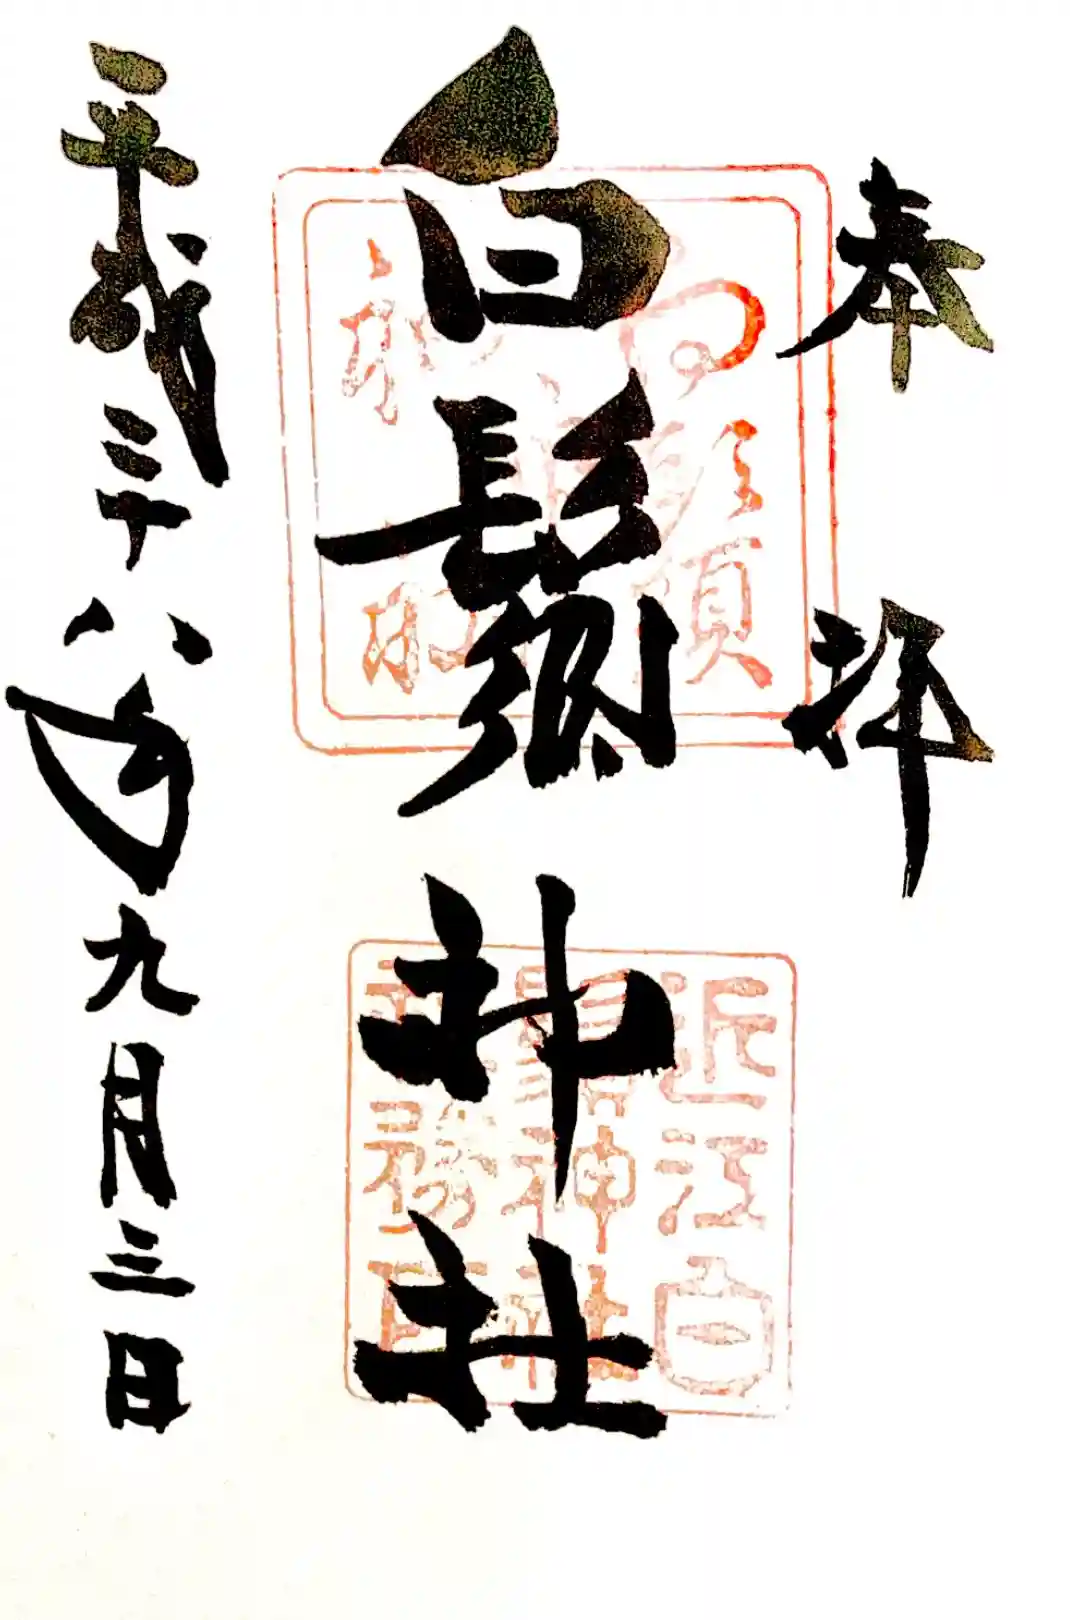 奉拝
白鬚神社
平成二十八年九月三日
白鬚
近江白
鬚神社